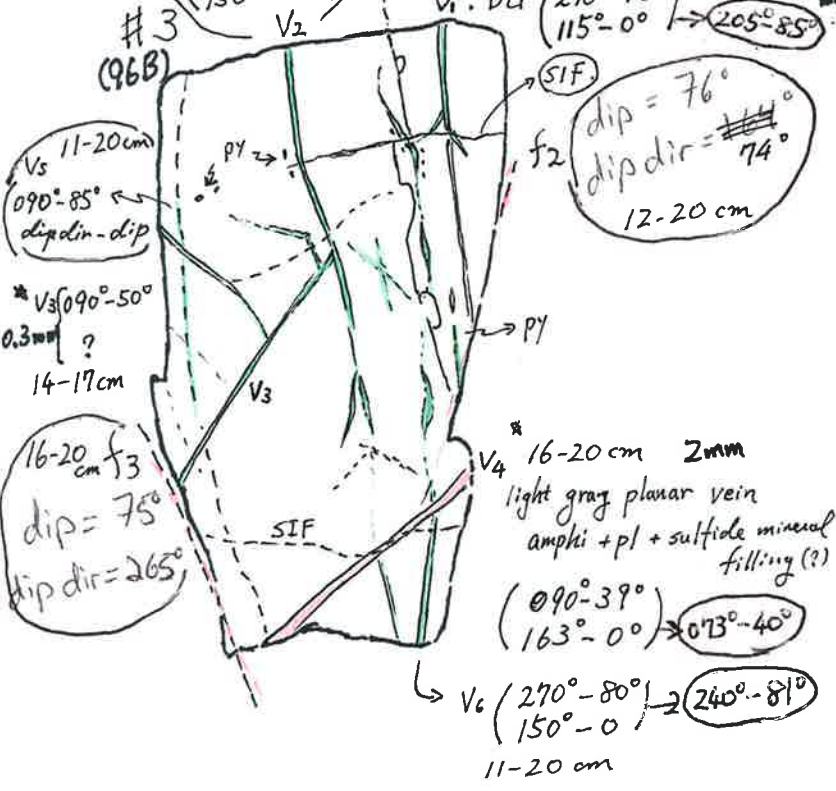 #3
(96B)
V2
115°-0°
205°-85°
SIF
dip = 76°
dip dir =
74°
12-20 cm
f2
V5 11-20cm
090°-85°
dipdir-dip
PY
* V3 090°-50°
0.3mm
?
14-17cm
PY
V3
16-20 cm f3
dip = 75°
dip dir = 265°
SIF
V4 * 16-20 cm 2mm
light gray planar vein
amphi + pl + sulfide mineral
filling (?)
090°-39°
163°-0°
073°-40°
V6 270°-80°
150°-0
240°-81°
11-20 cm